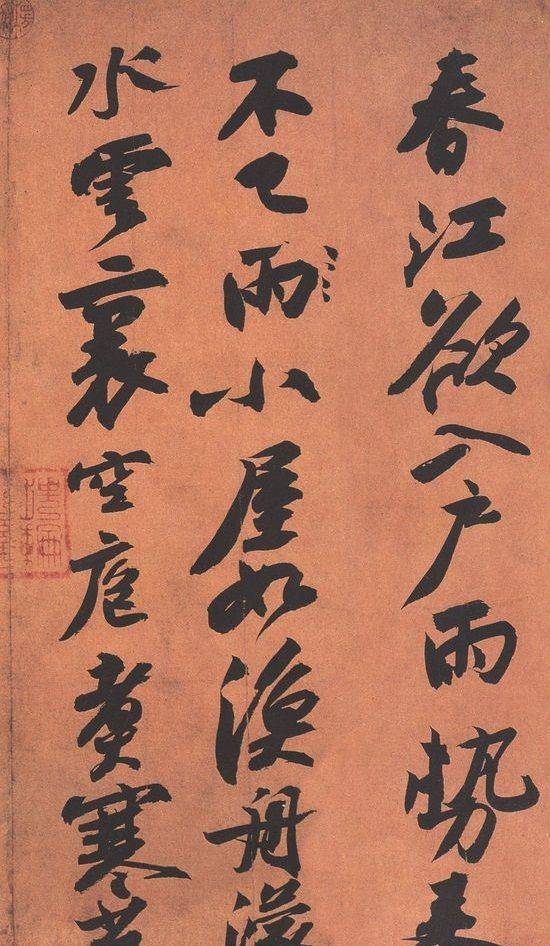 春江欲入户雨勢來
不已雨小屋如漁舟濛
水雲裏空庖煮寒菜